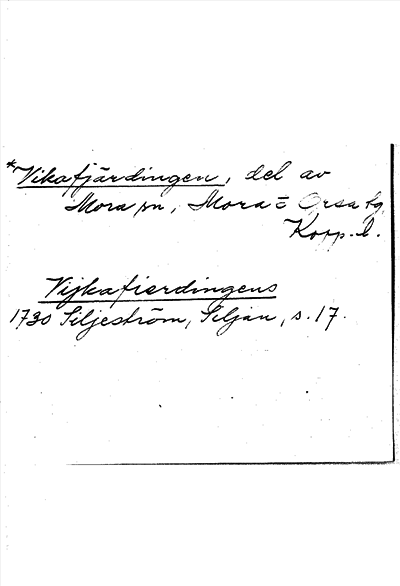 *Vikafjärdingen, del av
Mora sn, Mora = Orsa tg
Kopp. l.
Vijkafierdingens
1730 Siljeström, Siljan, s. 17.